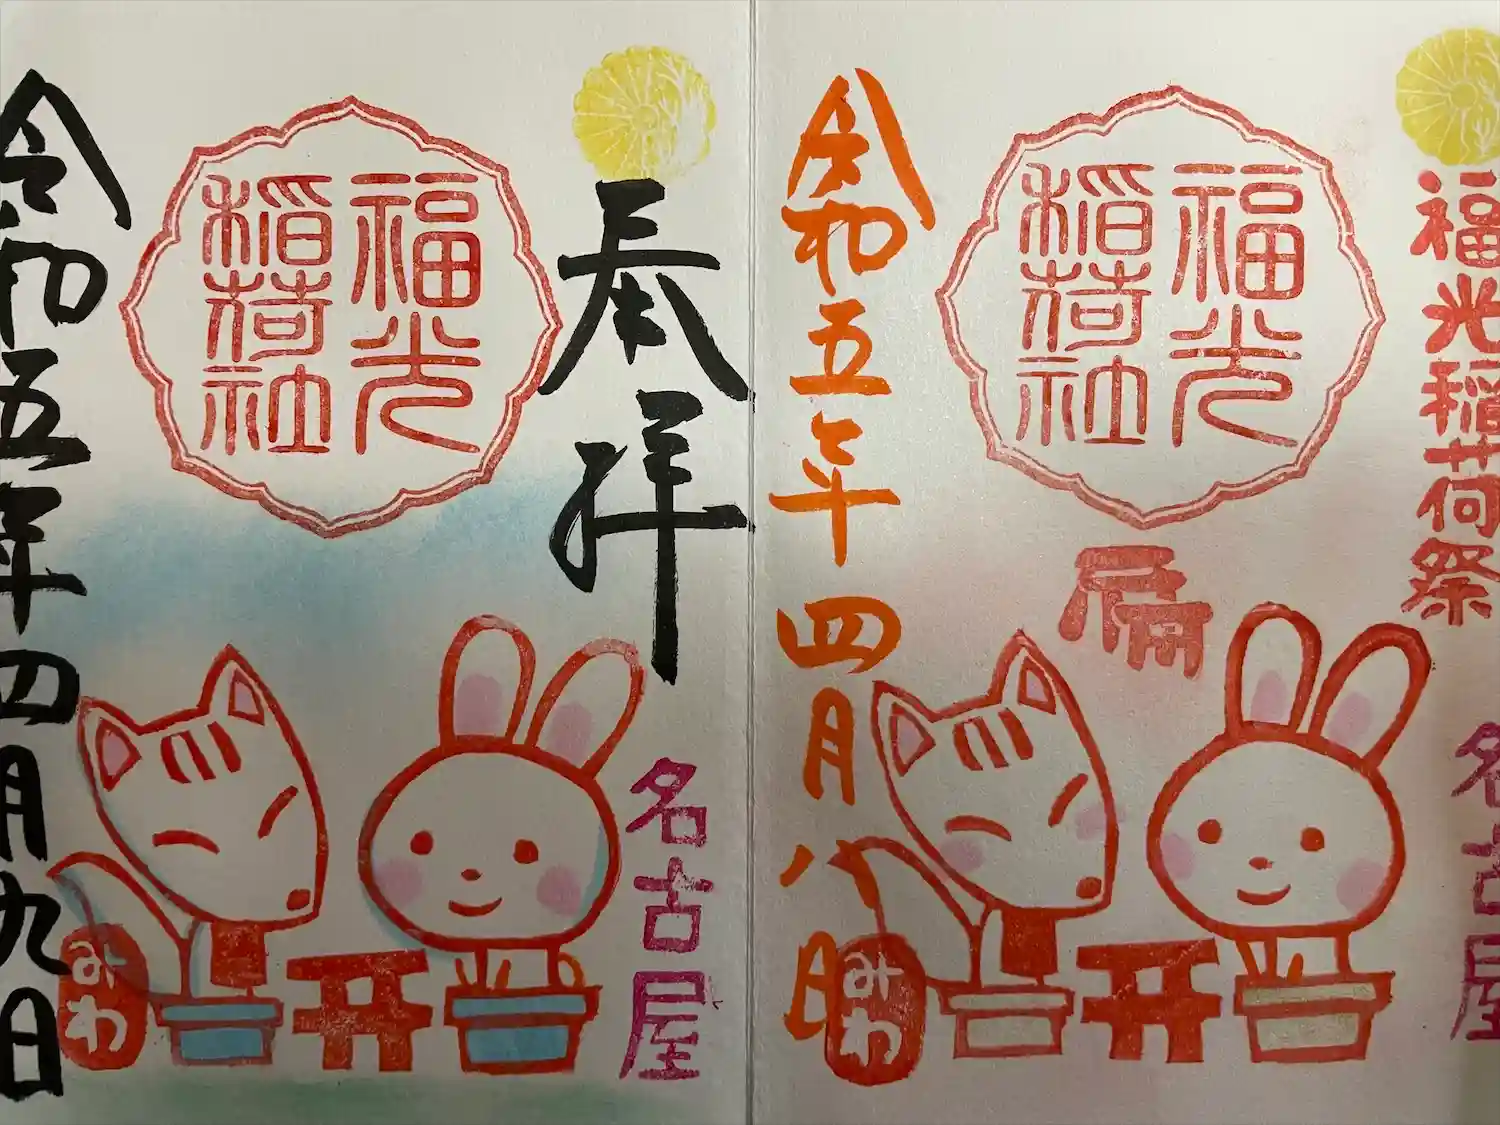 福光稲荷祭
名古屋
福光
稲荷社
令和五年四月八日
みわ
奉拝
名古屋
福光
稲荷社
令和五年四月九日
みわ